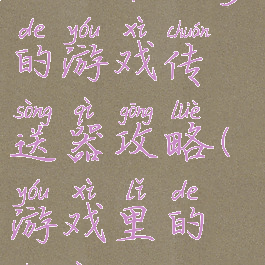 de yóu xì chuán
的游戏传
sòng qì gōng lüè
送器攻略(
yóu xì lǐ de
游戏里的